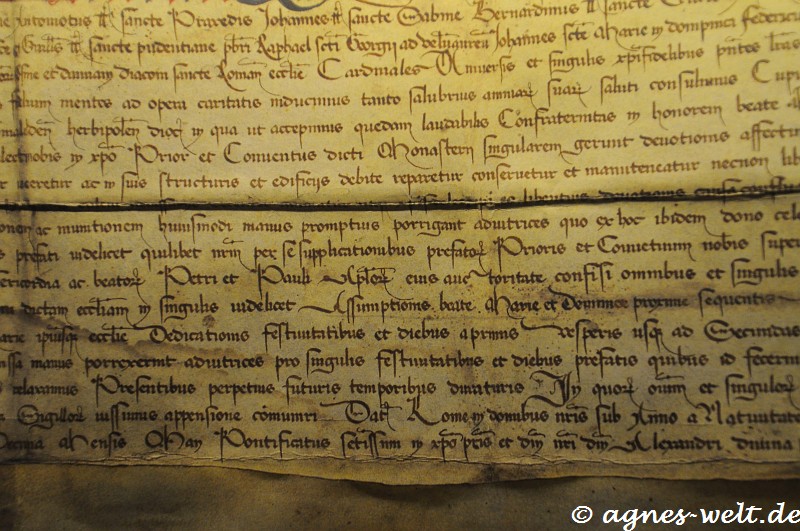 tt Sancte Praxedis Johannes tt sancte Sabine Bernardinus tt Sancte
tt sancte pudentiane pbri Raphael scti Georgii ad Johannes scte Marie in dompnici federicus
et diaconi sancte Roman ecclie Cardinales Universis et singulis xpifidelibus
mentes ad opera caritatis inducimus tanto salubrius animar suar saluti consulimus Cupi
herbipolen dioc in qua ut accepimus quedam laudabilis Confraternitas in honorem beate
in xpo Prior et Conventus dicti Monasterii singularem gerunt devotionis affectu
veretur ac in suis structuris et edificiis debite reparetur conservetur et manuteneatur necnon lib
ac munitionem huiusmodi manus promptius porrigant adiutrices quo ex hoc ibidem dono cele
prefati videlicet quilibet nrm per se supplicationibus prefator Prioris et Conventuum nobis super
ac beator Petri et Pauli aplor eius auctoritate confisi omnibus et singulis
dictam eccliam in singulis videlicet Assumptionis beate Marie et Dominice proxime sequentis
ecclie Dedicationis festivitatibus et diebus a primis vesperis usq ad Secundas
manus porrexerint adiutrices pro singulis festivitatibus et diebus prefatis quibus id fecerint
relaxamus Presentibus perpetuis futuris temporibus duraturis In quor omm et singulor
Sigillor iussimus appensione comuniri Dat Rome in domibus nris sub Anno a Nativitate
Decima Mensis May Pontificatus setissimi in xpo pris et dm nri dm Alexandri divina
© agnes-welt.de